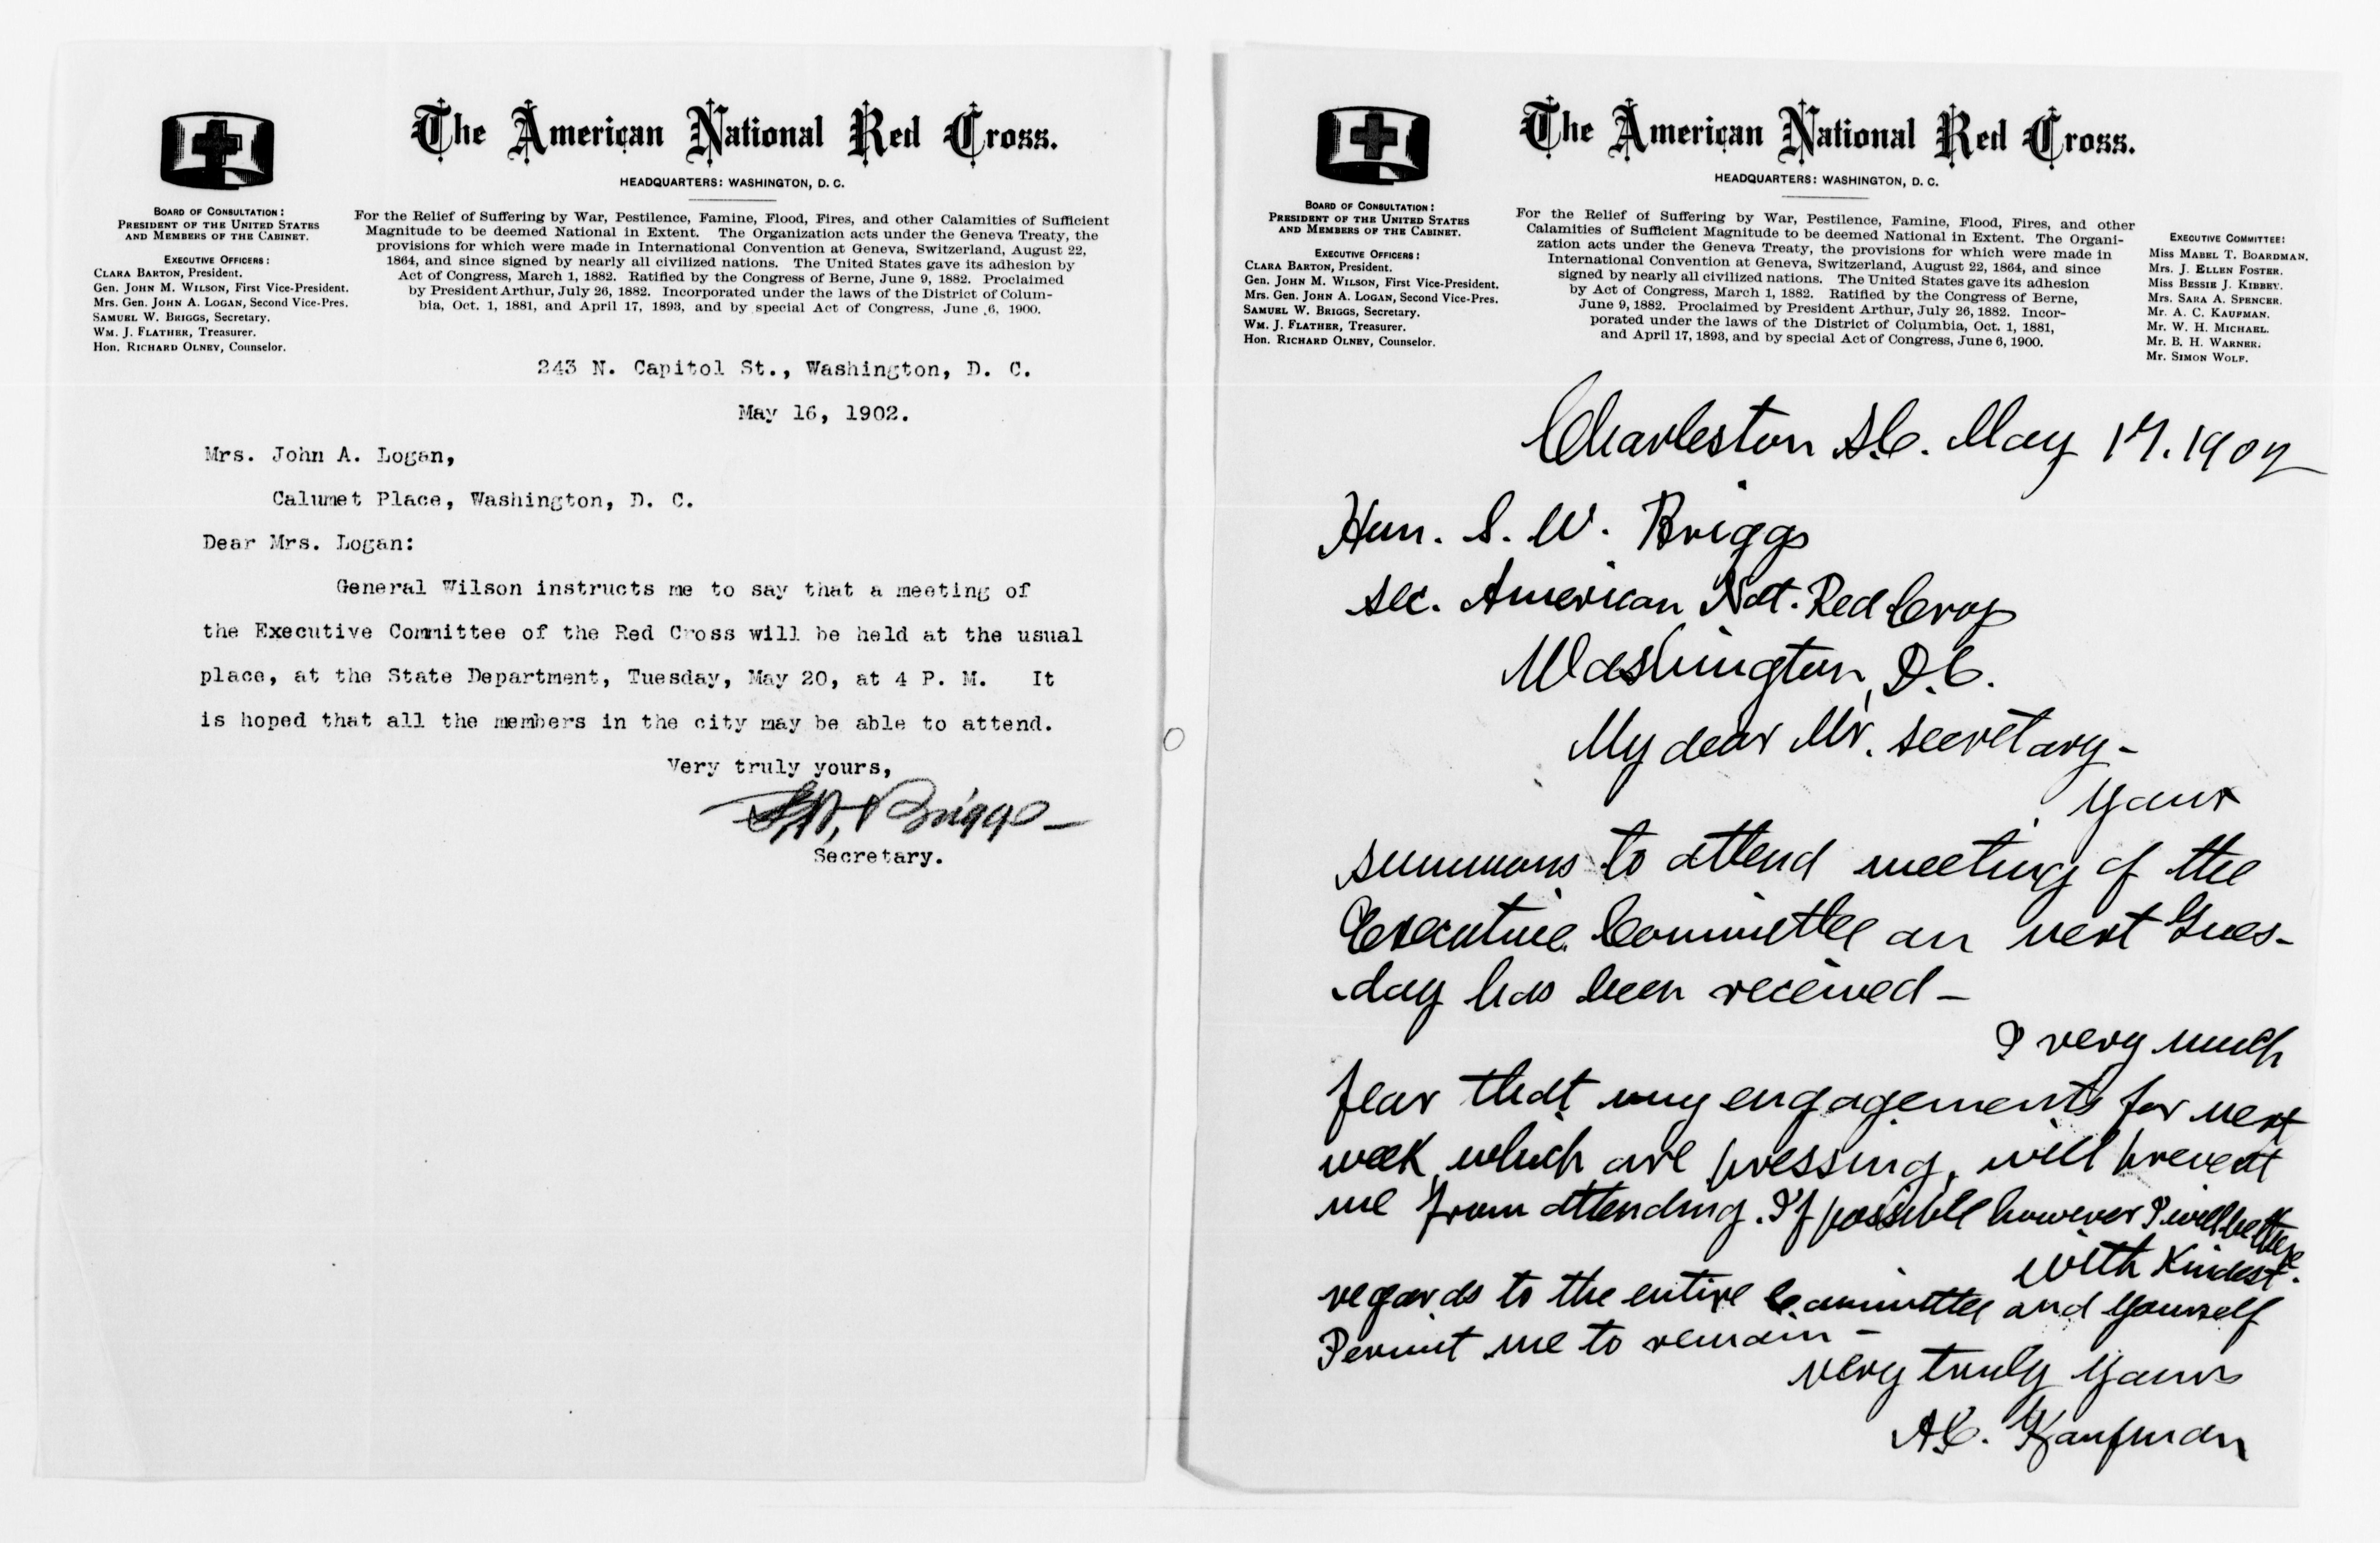 The American National Red Cross.
HEADQUARTERS: WASHINGTON, D. C.
BOARD OF CONSULTATION:
PRESIDENT OF THE UNITED STATES
AND MEMBERS OF THE CABINET.
EXECUTIVE OFFICERS:
CLARA BARTON, President.
Gen. JOHN M. WILSON, First Vice-President.
Mrs. Gen. JOHN A. LOGAN, Second Vice-Pres.
SAMUEL W. BRIGGS, Secretary.
WM. J. FLATHER, Treasurer.
Hon. RICHARD OLNEY, Counselor.
For the Relief of Suffering by War, Pestilence, Famine, Flood, Fires, and other Calamities of Sufficient
Magnitude to be deemed National in Extent. The Organization acts under the Geneva Treaty, the
provisions for which were made in International Convention at Geneva, Switzerland, August 22,
1864, and since signed by nearly all civilized nations. The United States gave its adhesion by
Act of Congress, March 1, 1882. Ratified by the Congress of Berne, June 9, 1882. Proclaimed
by President Arthur, July 26, 1882. Incorporated under the laws of the District of Colum-
bia, Oct. 1, 1881, and April 17, 1893, and by special Act of Congress, June 6, 1900.
243 N. Capitol St., Washington, D. C.
May 16, 1902.
Mrs. John A. Logan,
Calumet Place, Washington, D. C.
Dear Mrs. Logan:
General Wilson instructs me to say that a meeting of
the Executive Committee of the Red Cross will be held at the usual
place, at the State Department, Tuesday, May 20, at 4 P. M. It
is hoped that all the members in the city may be able to attend.
Very truly yours,
S. W. Briggs
Secretary.
The American National Red Cross.
HEADQUARTERS: WASHINGTON, D. C.
BOARD OF CONSULTATION:
PRESIDENT OF THE UNITED STATES
AND MEMBERS OF THE CABINET.
EXECUTIVE OFFICERS:
CLARA BARTON, President.
Gen. JOHN M. WILSON, First Vice-President.
Mrs. Gen. JOHN A. LOGAN, Second Vice-Pres.
SAMUEL W. BRIGGS, Secretary.
WM. J. FLATHER, Treasurer.
Hon. RICHARD OLNEY, Counselor.
For the Relief of Suffering by War, Pestilence, Famine, Flood, Fires, and other
Calamities of Sufficient Magnitude to be deemed National in Extent. The Organi-
zation acts under the Geneva Treaty, the provisions for which were made in
International Convention at Geneva, Switzerland, August 22, 1864, and since
signed by nearly all civilized nations. The United States gave its adhesion
by Act of Congress, March 1, 1882. Ratified by the Congress of Berne,
June 9, 1882. Proclaimed by President Arthur, July 26, 1882. Incor-
porated under the laws of the District of Columbia, Oct. 1, 1881,
and April 17, 1893, and by special Act of Congress, June 6, 1900.
EXECUTIVE COMMITTEE:
Miss MABEL T. BOARDMAN.
Mrs. J. ELLEN FOSTER.
Miss BESSIE J. KIBBEY.
Mrs. SARA A. SPENCER.
Mr. A. C. KAUFMAN.
Mr. W. H. MICHAEL.
Mr. B. H. WARNER.
Mr. SIMON WOLF.
Charleston S.C. May 17. 1902
Hon. S. W. Briggs
Sec. American Nat. Red Cross
Washington, D.C.
My dear Mr. Secretary-
Your
summons to attend meeting of the
Executive Committee on next Tues-
day has been received-
I very much
fear that my engagements for next
week, which are pressing, will prevent
me from attending. If possible however I will be there.
With Kindest
regards to the entire Committee and yourself
Permit me to remain-
Very truly yours
A.C. Kaufman